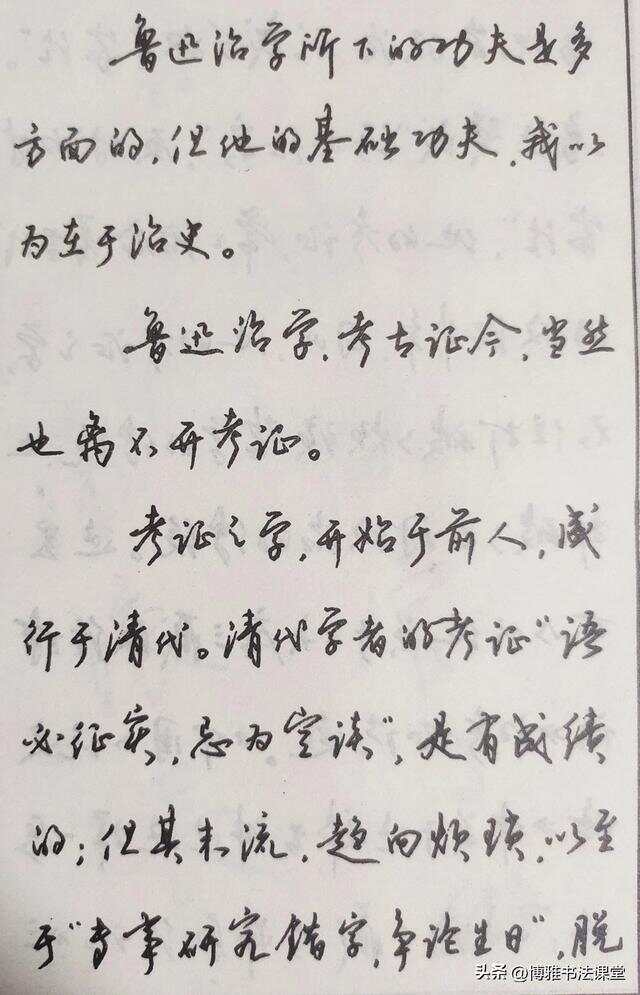 鲁迅治学所下的功夫是多
方面的，但他的基础功夫，我以
为在于治史。
鲁迅治学，考古证今，当然
也离不开考证。
考证之学，开始于前人，盛
行于清代。清代学者的考证“语
必征实，忌为空谈”，是有成绩
的；但其末流，趋向烦琐，以至
于“专事研究错字，争论生日”，脱
头条@博雅书法课堂